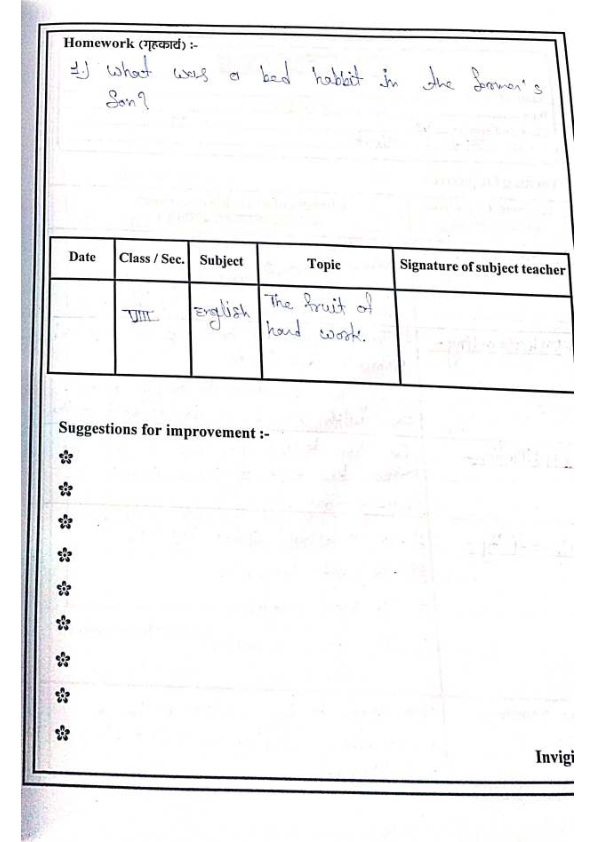 Homework (गृहकार्य) :-
1.) What was a bad habbit in the farmer's
Son?
Date Class / Sec. Subject Topic Signature of subject teacher
VIII English The fruit of
hard work.
Suggestions for improvement :-
Invigi